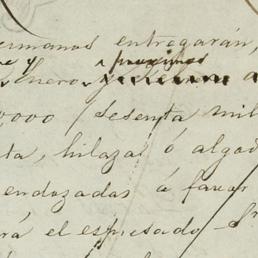 ermanos entregarán,
e y próximos
Enero
0,000 / sesenta mil
ta, hilaza ó algod
endozadas á favor
rá el espresado Sr